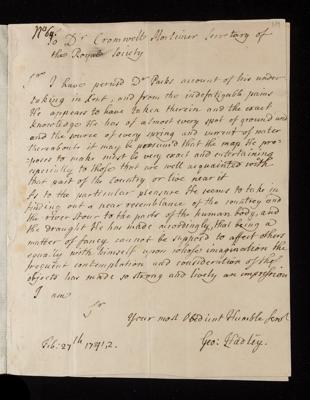 No 69.
To Dr Cromwell Mortimer Secretary of
the Royal Society
Sr
I have perus'd Dr Packs account of his under
taking in Kent, and from the indefatigable pains
He appears to have taken therein and the exact
knowledge He has of almost every spot of ground
and the source of every spring and current of water
thereabouts it may be presum'd that the map he pro-
poses to make must be very exact and entertaining
especially to those that are well acquainted with
that part of the Country or live near it.
As to the particular pleasure He seems to take in
finding out a near resemblance of the country and
the river Stour to the parts of the human body, and
the draught He has made accordingly, that being a
matter of fancy cannot be suppos'd to affect others
equally with himself upon whose imagination the
frequent contemplation and consideration of the
objects has made so strong and lively an impression
I am
Sr
Your most Obedient Humble Servt
Geo: Hadley.
Feb: 27th 1741/2.